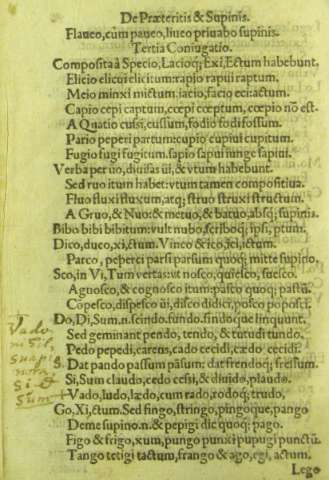 De Præteritis & Supinis.
Flaueo, cùm paueo, liueo priuabo supinis.
Tertia Coniugatio.
Composita à Specio, Lacioq; Exi, Ectum habebunt.
Elicio elicui elicitum: rapio rapui raptum,
Meio minxi mictum. iacio, facio eci: actum.
Capio cepi captum, cœpi cœptum, cœpio nō est.
A Quatio cussi, cussum, fodio fodi fossum.
Pario peperi partum: cupio cupiui cupitum.
Fugio fugi fugitum. sapio sapui iunge sapiui.
Verba per uo, diuisas üi, & vtum habebunt.
Sed ruo itum habet: vtum tamen compositiua.
Fluo fluxi fluxum, atq; struo struxi structum.
A Gruo, & Nuo: & metuo, & batuo, absq; supinis.
Bibo bibi bibitum: vult nubo, scriboq; ipsi, ptum,
Dico, duco, xi, ctum. Vinco & ico, ici, ictum.
Parco, peperci parsi parsum quoq; mitte supino.
Sco, in Vi, Tum vertas: vt nosco, quiesco, suesco.
Agnosco, & cognosco itum: pasco quoq; pastū.
Copesco, dispesco üi, disco didici, posco poposci.
Do, Di, Sum. n. scindo. fundo. findoque linquunt.
Sed geminant pendo, tendo, & tutudi tundo.
Pedo pepedi, carens, cado cecidi, cædo cecidi.
Dat pando passum pāsum: dat frendoq; fressum.
Si, Sum claudo, cedo cessi, & diuido, plaudo.
Vado, ludo, lædo, cum rado, rodoq; trudo,
Go, Xi, ctum. Sed fingo, stringo, pingoque, pango
Deme supino. n. & pepigi dic quoq; pago.
Figo & frigo, xum, pungo punxi pupugi punctū.
Tango tetigi tactum, frango & ago, egi, actum.
Lego
Vado
si &
sum